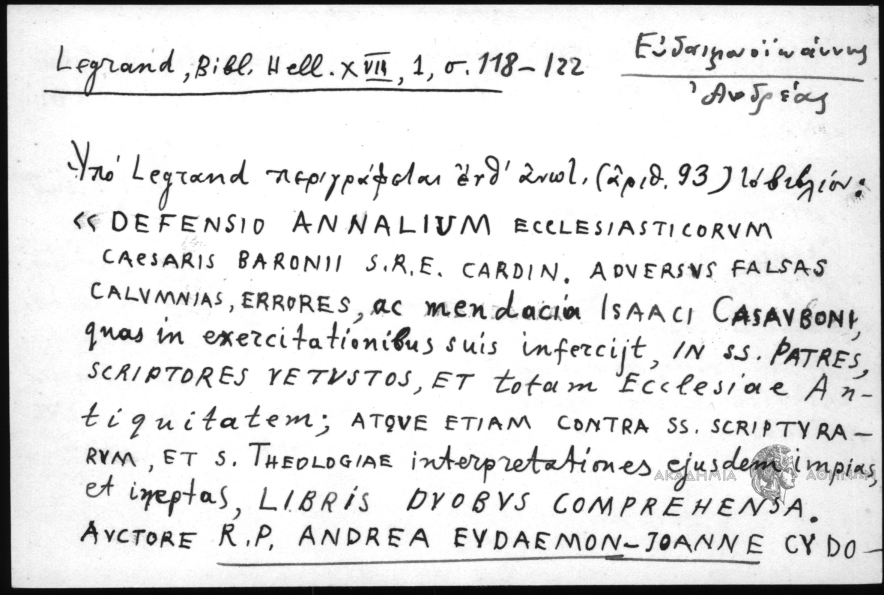 Legrand, Bibl. Hell. XVII, 1, σ. 118-122
Εὐδαιμονοϊωάννης
Ἀνδρέας
Ὑπό Legrand περιγράφεται ἐνθ' ἀνωτ. (ἀριθ. 93) τό βιβλίον:
«DEFENSIO ANNALIUM ECCLESIASTICORVM
CAESARIS BARONII S.R.E. CARDIN. ADVERSVS FALSAS
CALVMNIAS, ERRORES, ac mendacia ISAACI CASAVBONI,
quas in exercitationibus suis infercijt, IN SS. PATRES,
SCRIPTORES VETVSTOS, ET totam Ecclesiae An-
tiquitatem; ATQVE ETIAM CONTRA SS. SCRIPTVRA-
RVM, ET S. THEOLOGIAE interpretationes ejusdem impias,
et ineptas, LIBRIS DVOBVS COMPREHENSA.
AVCTORE R.P. ANDREA EVDAEMON-JOANNE CYDO-
ΑΚΑΔΗΜΙΑ ΑΘΗΝΩΝ